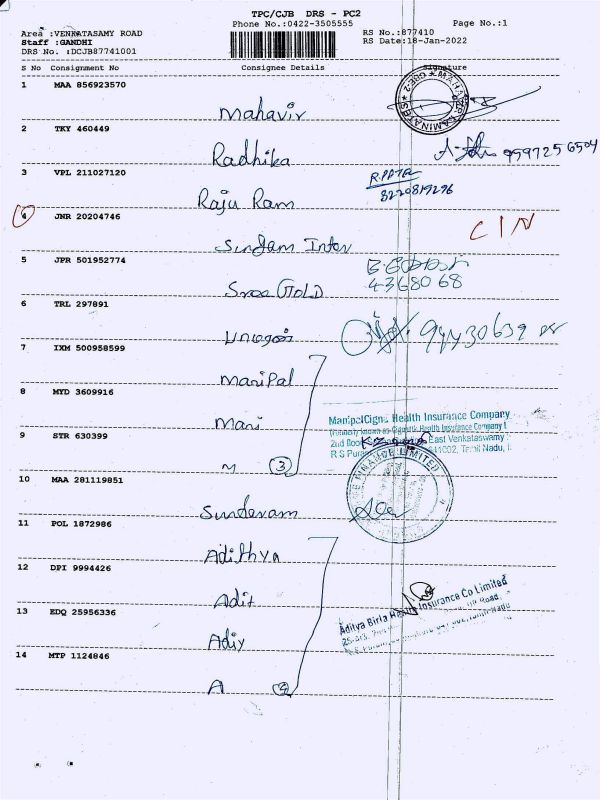 TPC/CJB DRS - PC2
Phone No.:0422-3505555
Page No.:1
Area :VENKATASAMY ROAD
Staff :GANDHI
DRS No. :DCJB87741001
RS No.:877410
RS Date:18-Jan-2022
S No Consignment No Consignee Details Signature
1 MAA 856923570 Mahavir
2 TKY 460449 Radhika 9597256504
3 VPL 211027120 Raju Ram 8220819296
4 JNR 20204746 Sundam Inter CIN
5 JPR 501952774 Sree GOLD 4368068
6 TRL 297891
7 IXM 500958599 Manipal
8 MYD 3609916 Mani
ManipalCigna Health Insurance Company
9 STR 630399 M 3
FINANCE LIMITED
10 MAA 281119851 Sundaram
11 POL 1872986 Adithya
12 DPI 9994426 Adit
Aditya Birla Health Insurance Co Limited
13 EDQ 25956336 Adiy
14 MTP 1124846 A